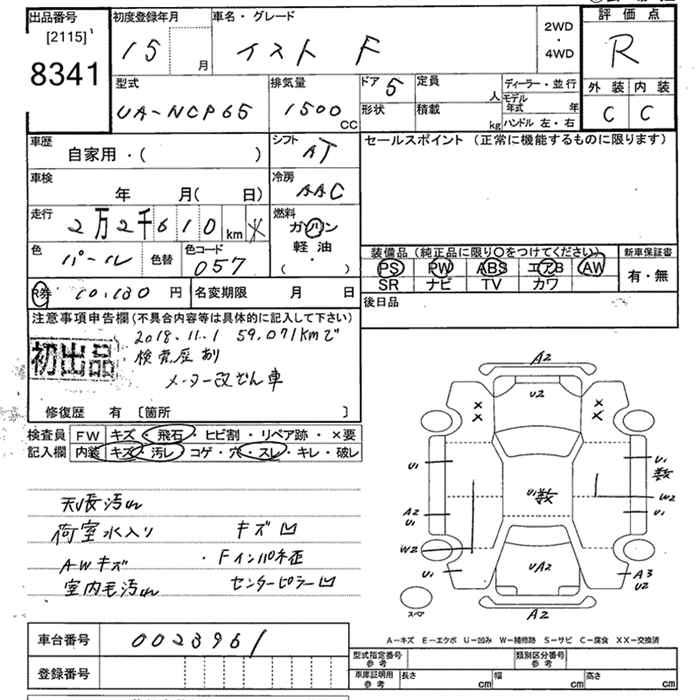 出品番号 初度登録年月 車名・グレード 評価点
[2115] 15 月 イスト F 2WD・4WD R
8341
型式 排気量 ドア 5 定員 人 ディーラー・並行 外装 内装
UA-NCP65 1500 CC 形状 積載 kg モデル年式 年 C C
ハンドル 左・右
車歴 シフト セールスポイント (正常に機能するものに限ります)
自家用・( ) AT
車検 冷房
年 月(日) AAC
走行 燃料
2万2千610 km ガソリン
軽油
(・)
色 パール 色替 色コード 057
装備品 (純正品に限り○をつけてください) 新車保証書
PS PW ABS エアB AW 有・無
SR ナビ TV カワ
R券 10,130 円 名変期限 月 日 後日品
注意事項申告欄 (不具合内容等は具体的に記入して下さい)
初出品 2018.11.1 59.071kmで
検査歴あり
メーター改ざん車
修復歴 有 [箇所 ]
検査員 FW キズ・飛石・ヒビ割・リペア跡・×要
記入欄 内装 キズ・汚レ・コゲ・穴・スレ・キレ・破レ
天張汚れ
荷室水入り キズ凹
AWキズ ・Fインパネ歪
室内毛汚れ センターピラー凹
A2
U2
× × × ×
U1 U1 数
U1 数 W2
A2 U1 U1
W2
U1 UA2 A3 U2
スペア
A2
車台番号 0023961
登録番号
A-キズ E-エクボ U-凹み W-補修跡 S-サビ C-腐食 XX-交換済
型式指定番号 参考 類別区分番号 参考
車庫証明用 参考 長さ cm 幅 cm 高さ cm